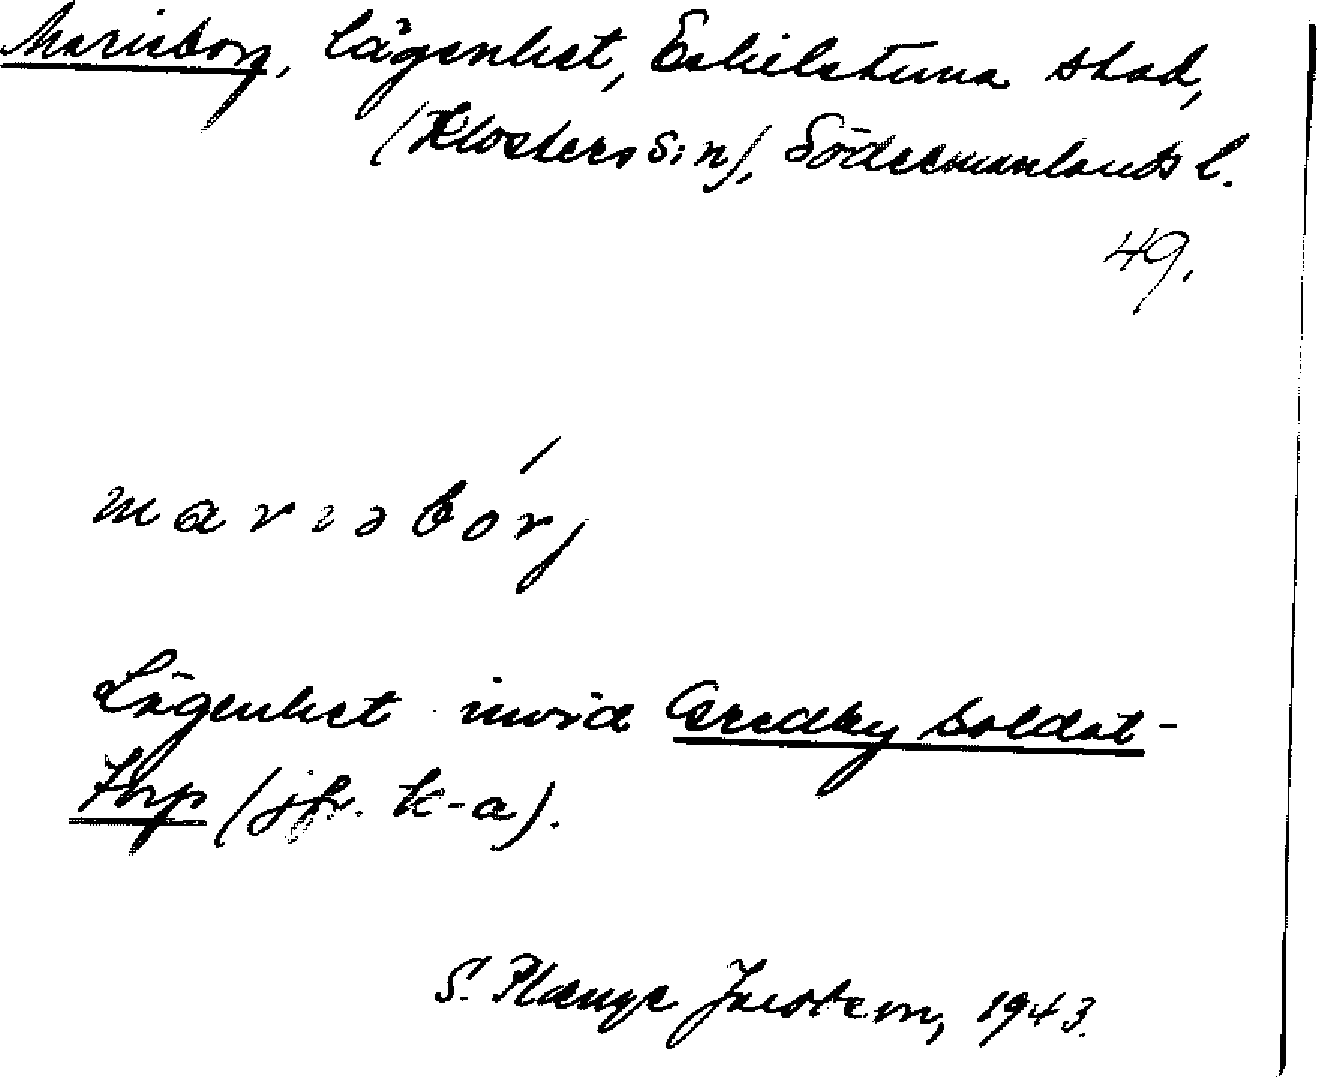 Marieborg, lägenhet, Eskilstuna stad,
(Klosters s:n), Södermanlands l.
49.
mariabórj
Lägenhet invid Gredby soldat-
torp (jfr. k-a).
S. Plænge Jacobson, 1943.